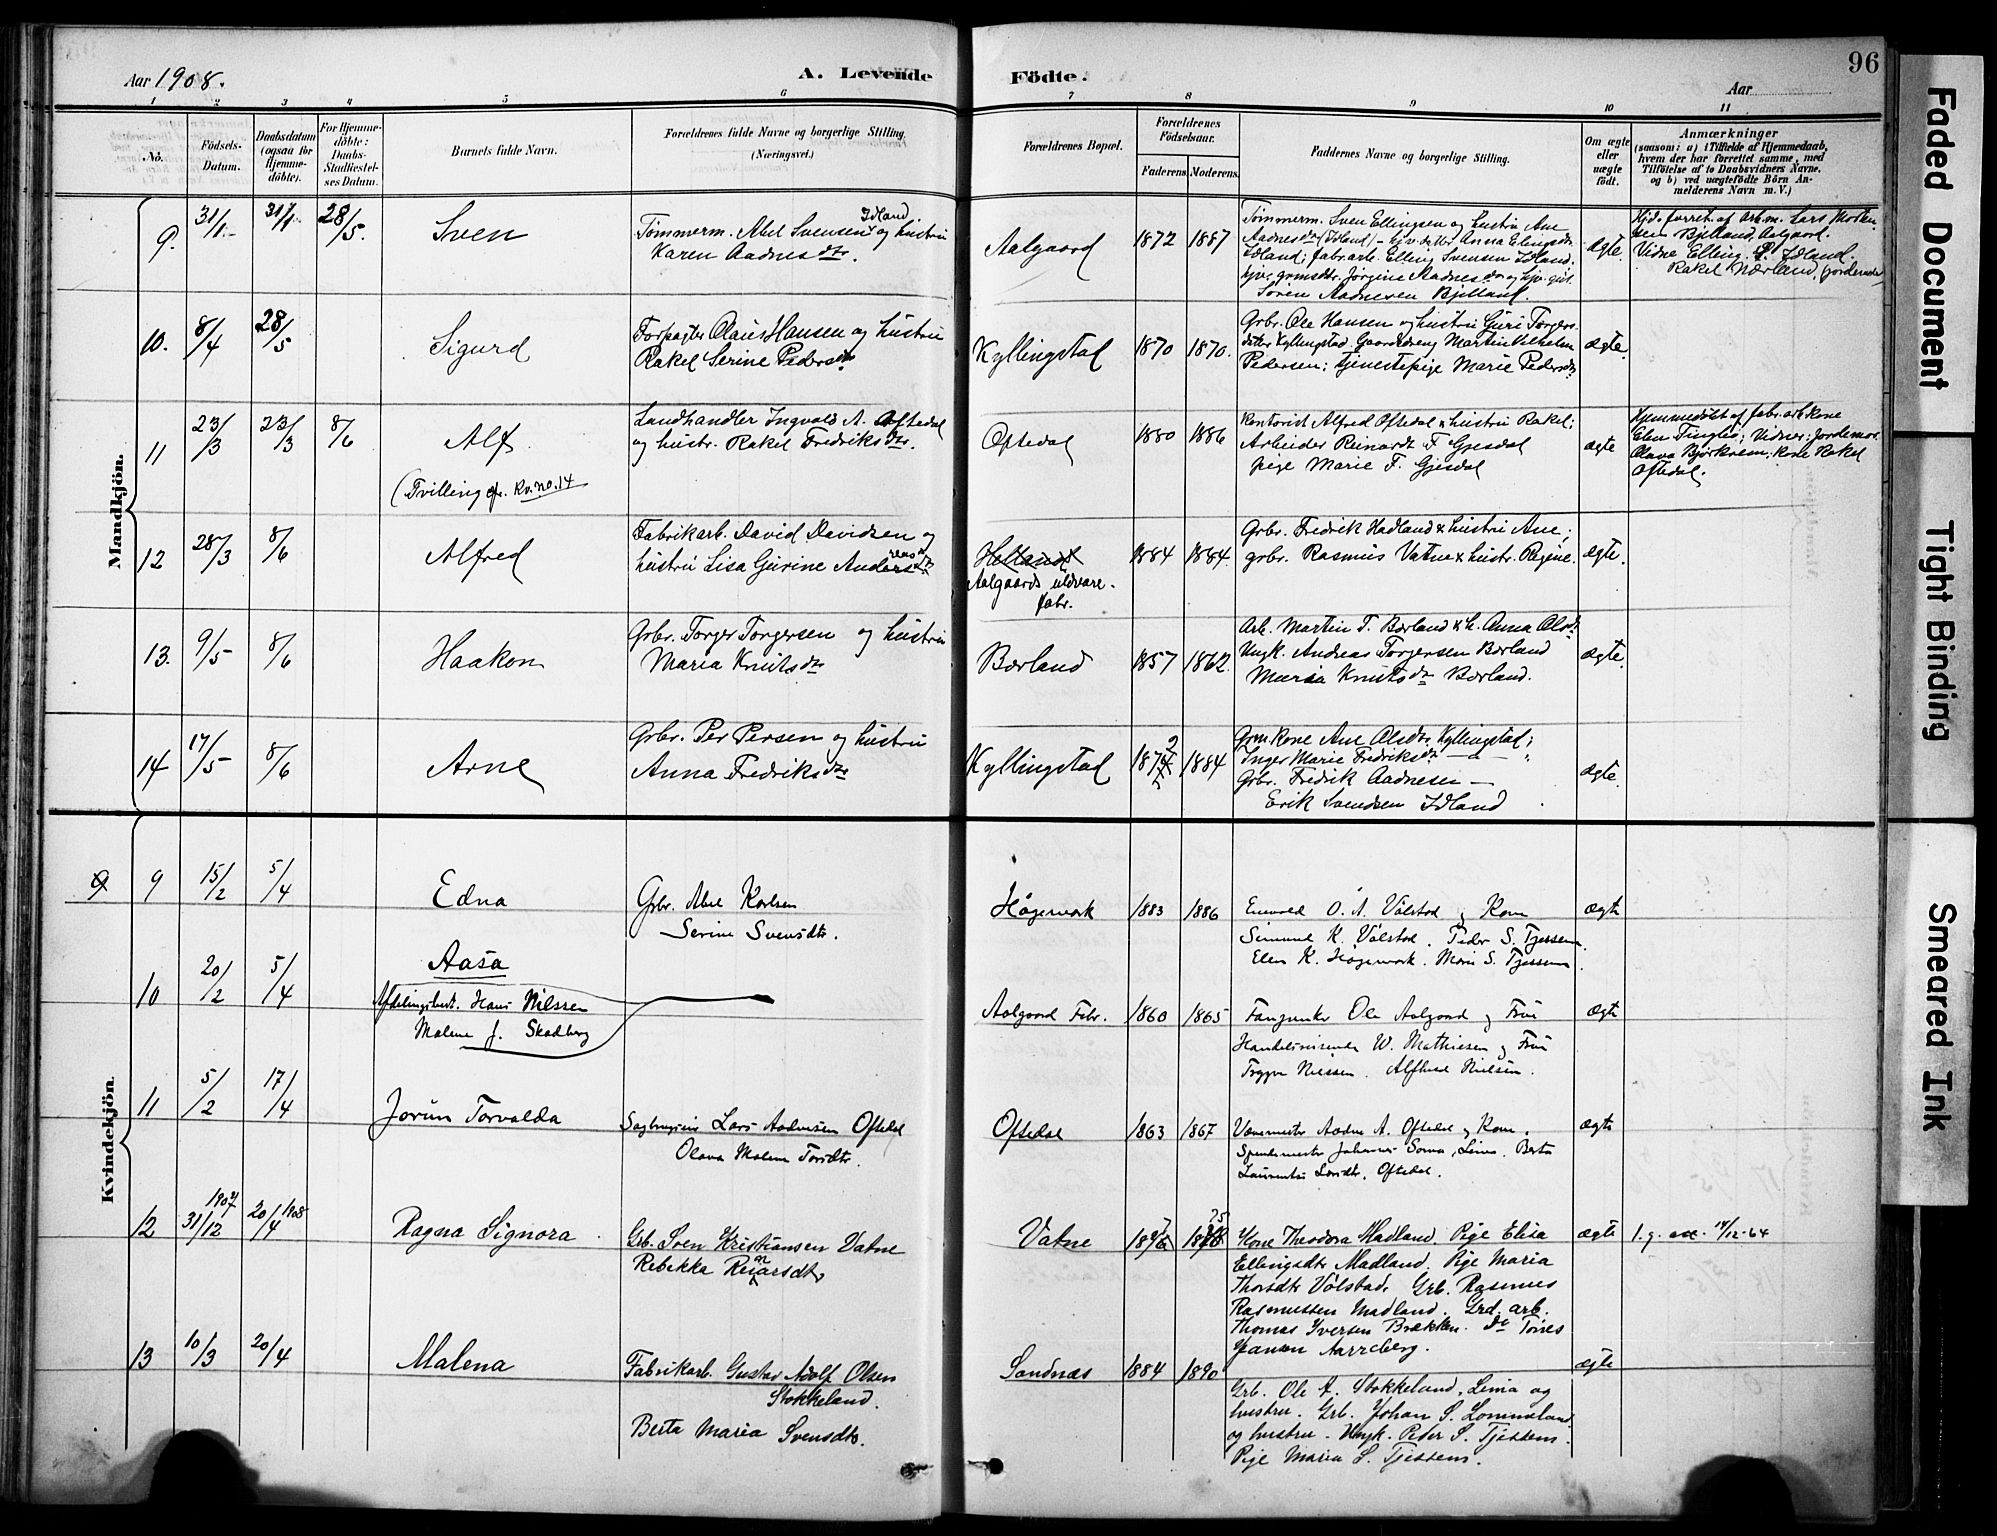 Aar 1908.
A. Levende
Födte.
Aar
96
1 2 3 4 5 6 7 8 9 10 11
No.
Födsels-Datum.
Daabsdatum (ogsaa for Hjemme-döbte).
For Hjemme-döbte: Daabs-Stadfæstel-ses Datum.
Barnets fulde Navn.
Forældrenes fulde Navne og borgerlige Stilling.
(Næringsvei.)
Forældrenes Bopæl.
Forældrenes Födselsaar.
Faderens
Moderens
Faddernes Navne og borgerlige Stilling.
Om ægte eller uægte födt.
Anmærkninger
(saasom: a) i Tilfælde af Hjemmedaab, hvem der har forrettet samme, med Tilföielse af to Daabsvidners Navne. og b) ved uægtefödte Börn An-melderens Navn m. V.)
Mandkjön.
9. 31/1 31/1 28/5. Sven
Tømmerm. Abel Svensen Idland og hustru
Karen Aadnesdtr.
Aalgaard 1872 1887
Tømmerm. Sven Ellingsen og hustru Ane
Aadnesdtr (Idland)
Idland; fabr.arb. Elling Svensen Idland.
Søren Aadnesen Bjelland.
ægte.
Hjd. forret. af arb.m. Lars Morten-
sen Bjelland, Aalgaard.
Vidne Elling S. Idland.
Rakel Nærland,
10. 8/4 28/5 Sigurd
Forpagter Olaus Hansen og hustru
Rakel Serine Pedersdtr
Kyllingstad 1870 1870.
Grbr. Ole Hansen og hustru Guri Torgers-
datter Kyllingstad. Gaardsdreng Martin Vilhelm
Pedersen; tjenestepige Marie Pedersdtr
ægte.
11 23/3 23/3 8/6 Alf
(Tvilling cfr. Kv. no. 14
Landhandler Ingvald A. Oftedal
og hustr. Rakel Fredriksdtr.
Oftedal 1880 1886
Kontorist Alfred Oftedal & hustru Rakel;
Arbeider Reinardt F Gjesdal
pige Marie F. Gjesdal
ægte
Hjemmedøbt af fabr. arb. kone
Elen Tinglø; Vidner: Jordemor
Olava Bjørkrem; kone Rakel
Oftedal.
12 28/3 8/6 Alfred
Fabrikarb. David Davidsen og
hustru Lisa Gurine Andersdtr
Helland
Aalgaards uldvare-
fabr.
1884 1884.
Grbr. Fredrik Hadland & hustru Ane;
grbr. Rasmus Vatne & hustr. Regine.
ægte.
13. 9/5 8/6 Haakon
Grbr. Torger Torgersen og hustru
Maria Knutsdtr
Bærland 1857 1862.
Arb. Martin T. Bærland & h. Anna Olsdtr
Ungk. Andreas Torgersen Bærland
Maria Knutsdtr Bærland.
ægte.
14 17/5 8/6 Arne
Grbr. Per Persen og hustru
Anna Fredriksdtr
Kyllingstad 1872 1884
Grmkone Ane Olsdtr. Kyllingstad;
Inger Marie Fredriksdtr
Grbr. Fredrik Aadnesen —
Erik Svendsen Idland
ægte.
Kvindekjön.
9 9 15/2 5/4 Edna
Grbr. Abel Karlsen
Serine Svensdtr.
Høgemork 1883 1886
Enevold O. A. Vølstad og Kone
Simund K. Vølstad. Peder S. Tjessem.
Elen K. Høgemork. Marie S. Tjessem.
ægte
10 20/2 5/4 Aasa
Afdelingsbest. Hans Nilssen
Malene J. Skadberg
Aalgaard Fabr. 1860 1865
Ole Aalgaard og Frue
Handelsreisende W. Mathiesen og Frue
Trygve Nilssen. Alfhild Nielsen.
ægte
11 5/2 17/4 Jorun Torvalda
Lars Aadnesen Oftedal
Olava Malene Torsdtr.
Oftedal 1863 1867
Vævemester Aadne A. Oftedal og Kone.
Spindemester Johannes Soma, Lima. Berta
Laurentse Larsdtr. Oftedal.
ægte
12 1907 31/12 20/4 1908 Ragna Signora
Grb. Sven Kristiansen Vatne
Rebekka Reinarsdtr
Vatne
75
Kone Theodora Madland. Pige Elisa
Ellingsdtr Madland. Pige Maria
Thorsdtr Vølstad. Grb. Rasmus
Rasmussen Madland. Grd. arb.
Thomas Iversen Brækken. Do Tønes
Jansen Aarreberg.
ægte
l. g. att. 14/12-64
13 10/3 20/4 Malena
Fabrikarb. Gustav Adolf Olsen
Stokkeland.
Berta Maria Svensdtr.
Sandnæs 1884 1890
Grb. Ole A. Stokkeland, Lima og
hustru. Grb. Johan S. Lommeland
og hustru. Ungk. Peder S. Tjessem.
Pige Maria S. Tjessem.
ægte
Faded Document
Tight Binding
Smeared Ink